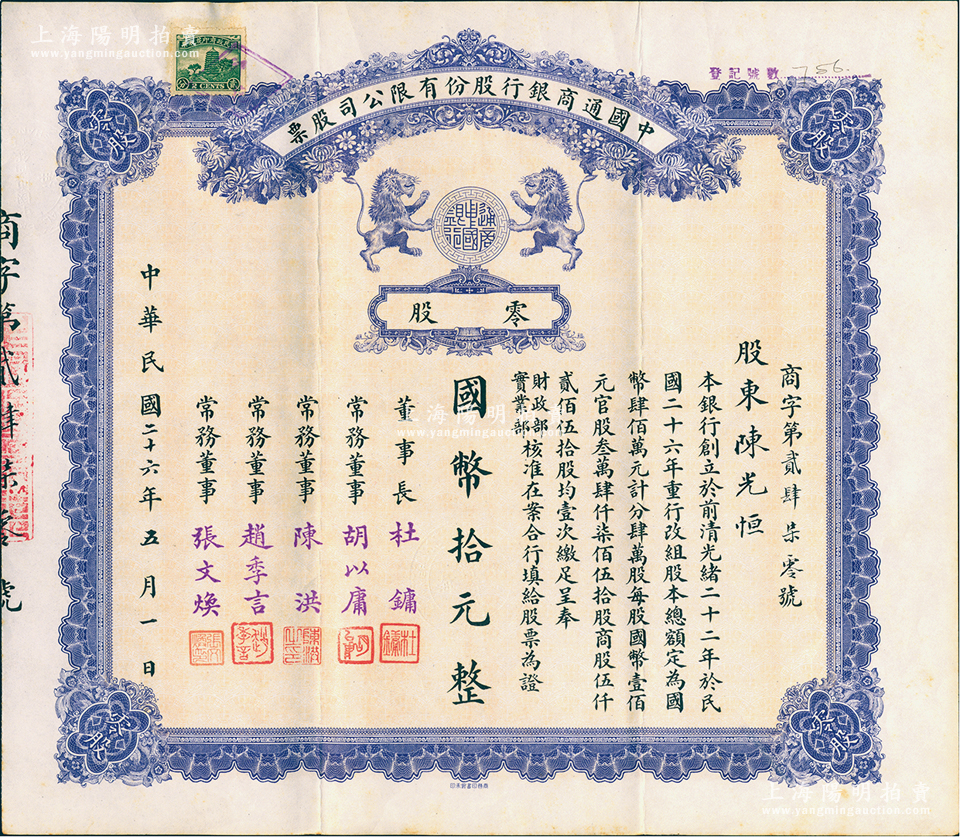 上海陽明拍賣
www.yangmingauction.com
2 CENTS
登記號數 756.
中國通商銀行股份有限公司股票
零股
零股
中國通商銀行
零股
商字第貳肆柒零號
股東陳光恒
本銀行創立於前清光緒二十二年於民
國二十六年重行改組股本總額定為國
幣肆佰萬元計分肆萬股每股國幣壹佰
元官股叁萬肆仟柒佰伍拾股商股伍仟
貳佰伍拾股均壹次繳足呈奉
財政部
實業部核准在案合行填給股票為證
國幣拾元整
董事長 杜鏞
常務董事 胡以庸
常務董事 陳洪
常務董事 趙季言
常務董事 張文煥
中華民國二十六年五月一日
商字第貳肆柒零號
上海陽明拍賣
www.yangmingauction.com
零股
零股
商務印書館承印
上海陽明拍賣
www.yangmingauction.com